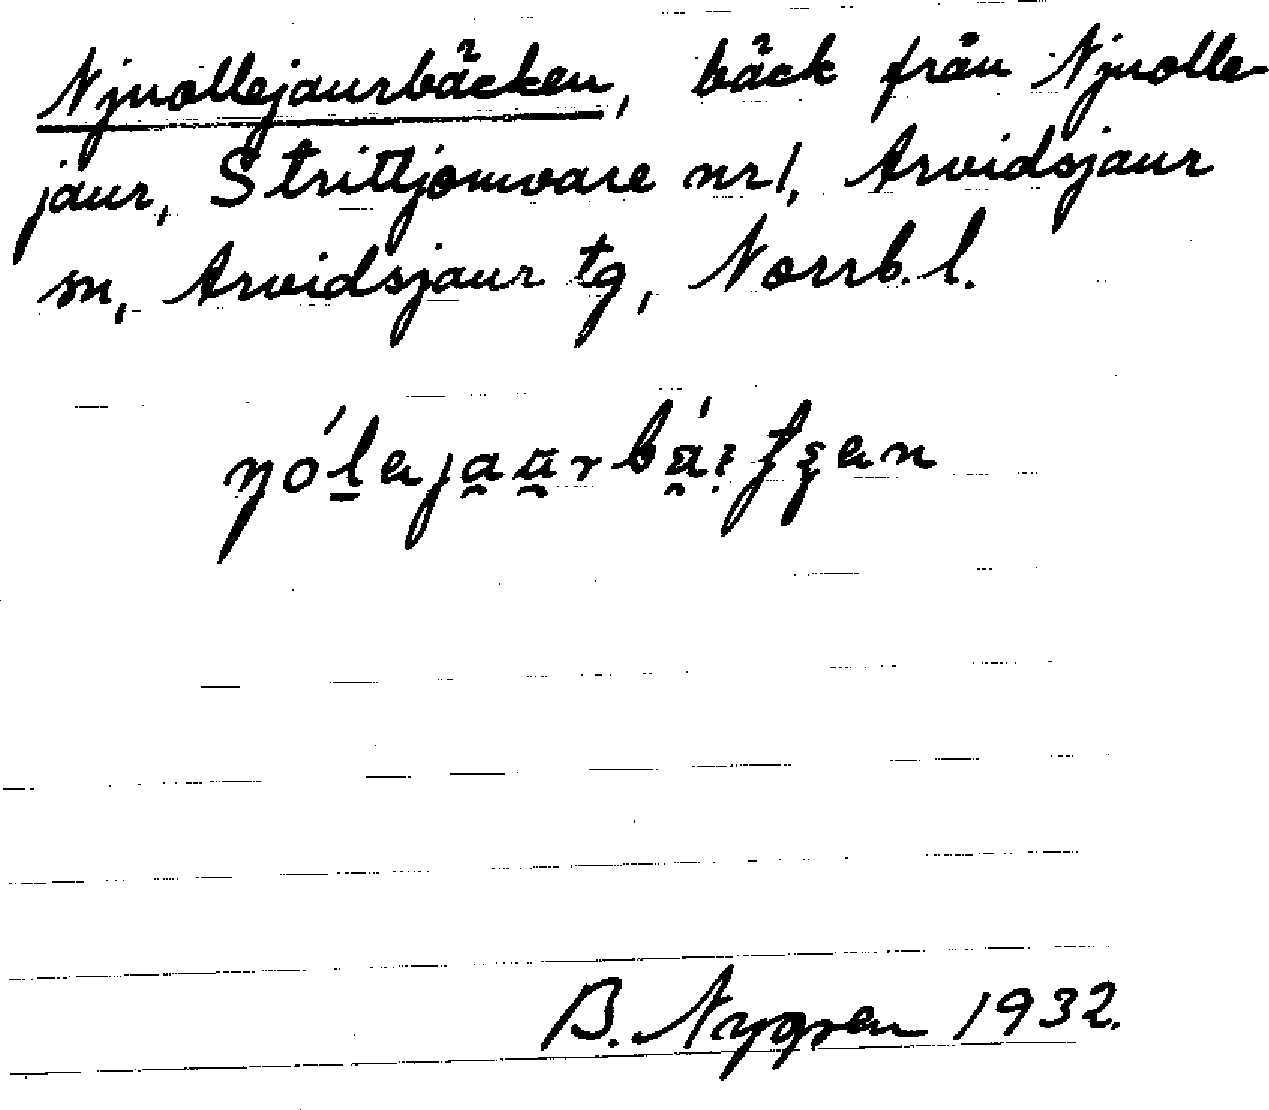 Njuollejaurbäcken, bäck från Njuolle-
jaur, Strittjomvare nr 1, Arvidsjaur
sn, Arvidsjaur tg, Norrb. l.
B. Nygren 1932.